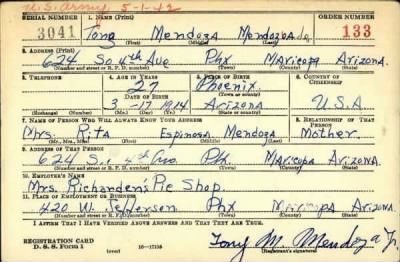 U.S. Army, 5-1-42
SERIAL NUMBER 1. NAME (Print) ORDER NUMBER
3041 Tony Mendoza Mendoza Jr. 133
(First) (Middle) (Last)
2. ADDRESS (Print)
624 So. 4th Ave Phx Maricopa Arizona.
(Number and street or R. F. D. number) (Town) (County) (State)
3. TELEPHONE 4. AGE IN YEARS 5. PLACE OF BIRTH 6. COUNTRY OF CITIZENSHIP
27 Phoenix
DATE OF BIRTH
3-17-1914 Arizona U.S.A
(Exchange) (Number) (Mo.) (Day) (Yr.) (State or country)
7. NAME OF PERSON WHO WILL ALWAYS KNOW YOUR ADDRESS 8. RELATIONSHIP OF THAT PERSON
Mrs. Rita Espinosa Mendoza Mother.
(Mr., Mrs., Miss) (First) (Middle) (Last)
9. ADDRESS OF THAT PERSON
624 S. 4th Ave. Phx. Maricopa Arizona
(Number and street or R. F. D. number) (Town) (County) (State)
10. EMPLOYER'S NAME
Mrs. Richardsons Pie Shop.
11. PLACE OF EMPLOYMENT OR BUSINESS
420 W. Jefferson Phx Maricopa Arizona.
(Number and street or R. F. D. number) (Town) (County) (State)
I AFFIRM THAT I HAVE VERIFIED ABOVE ANSWERS AND THAT THEY ARE TRUE.
REGISTRATION CARD
D. S. S. FORM 1 16-17105 Tony M. Mendoza Jr.
(over) (Registrant's signature)